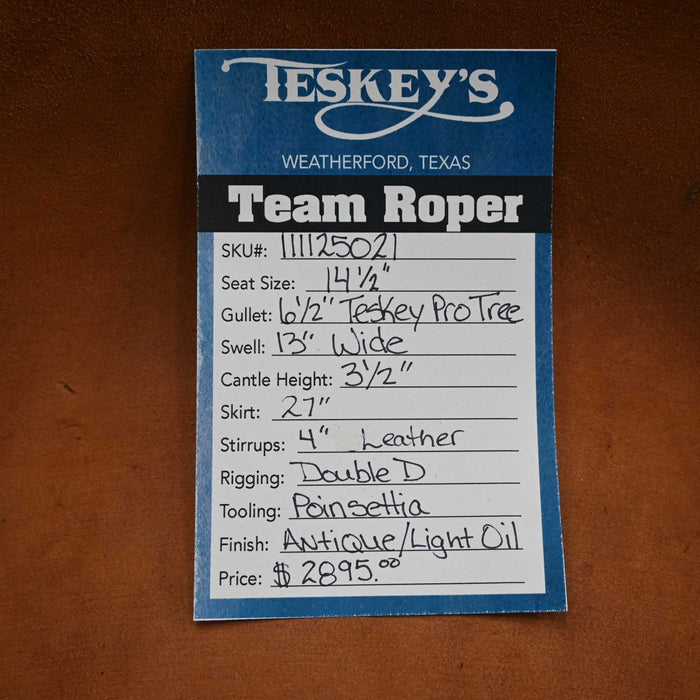 TESKEY'S
WEATHERFORD, TEXAS
Team Roper
SKU#: 111125021
Seat Size: 14 1/2"
Gullet: 6 1/2" Teskey Pro Tree
Swell: 13" Wide
Cantle Height: 3 1/2"
Skirt: 27"
Stirrups: 4" Leather
Rigging: Double D
Tooling: Poinsettia
Finish: Antique/Light Oil
Price: $2895.00